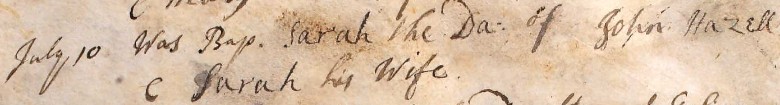 July 10 Was Bap. Sarah the Da: of John Hazell
& Sarah his Wife.